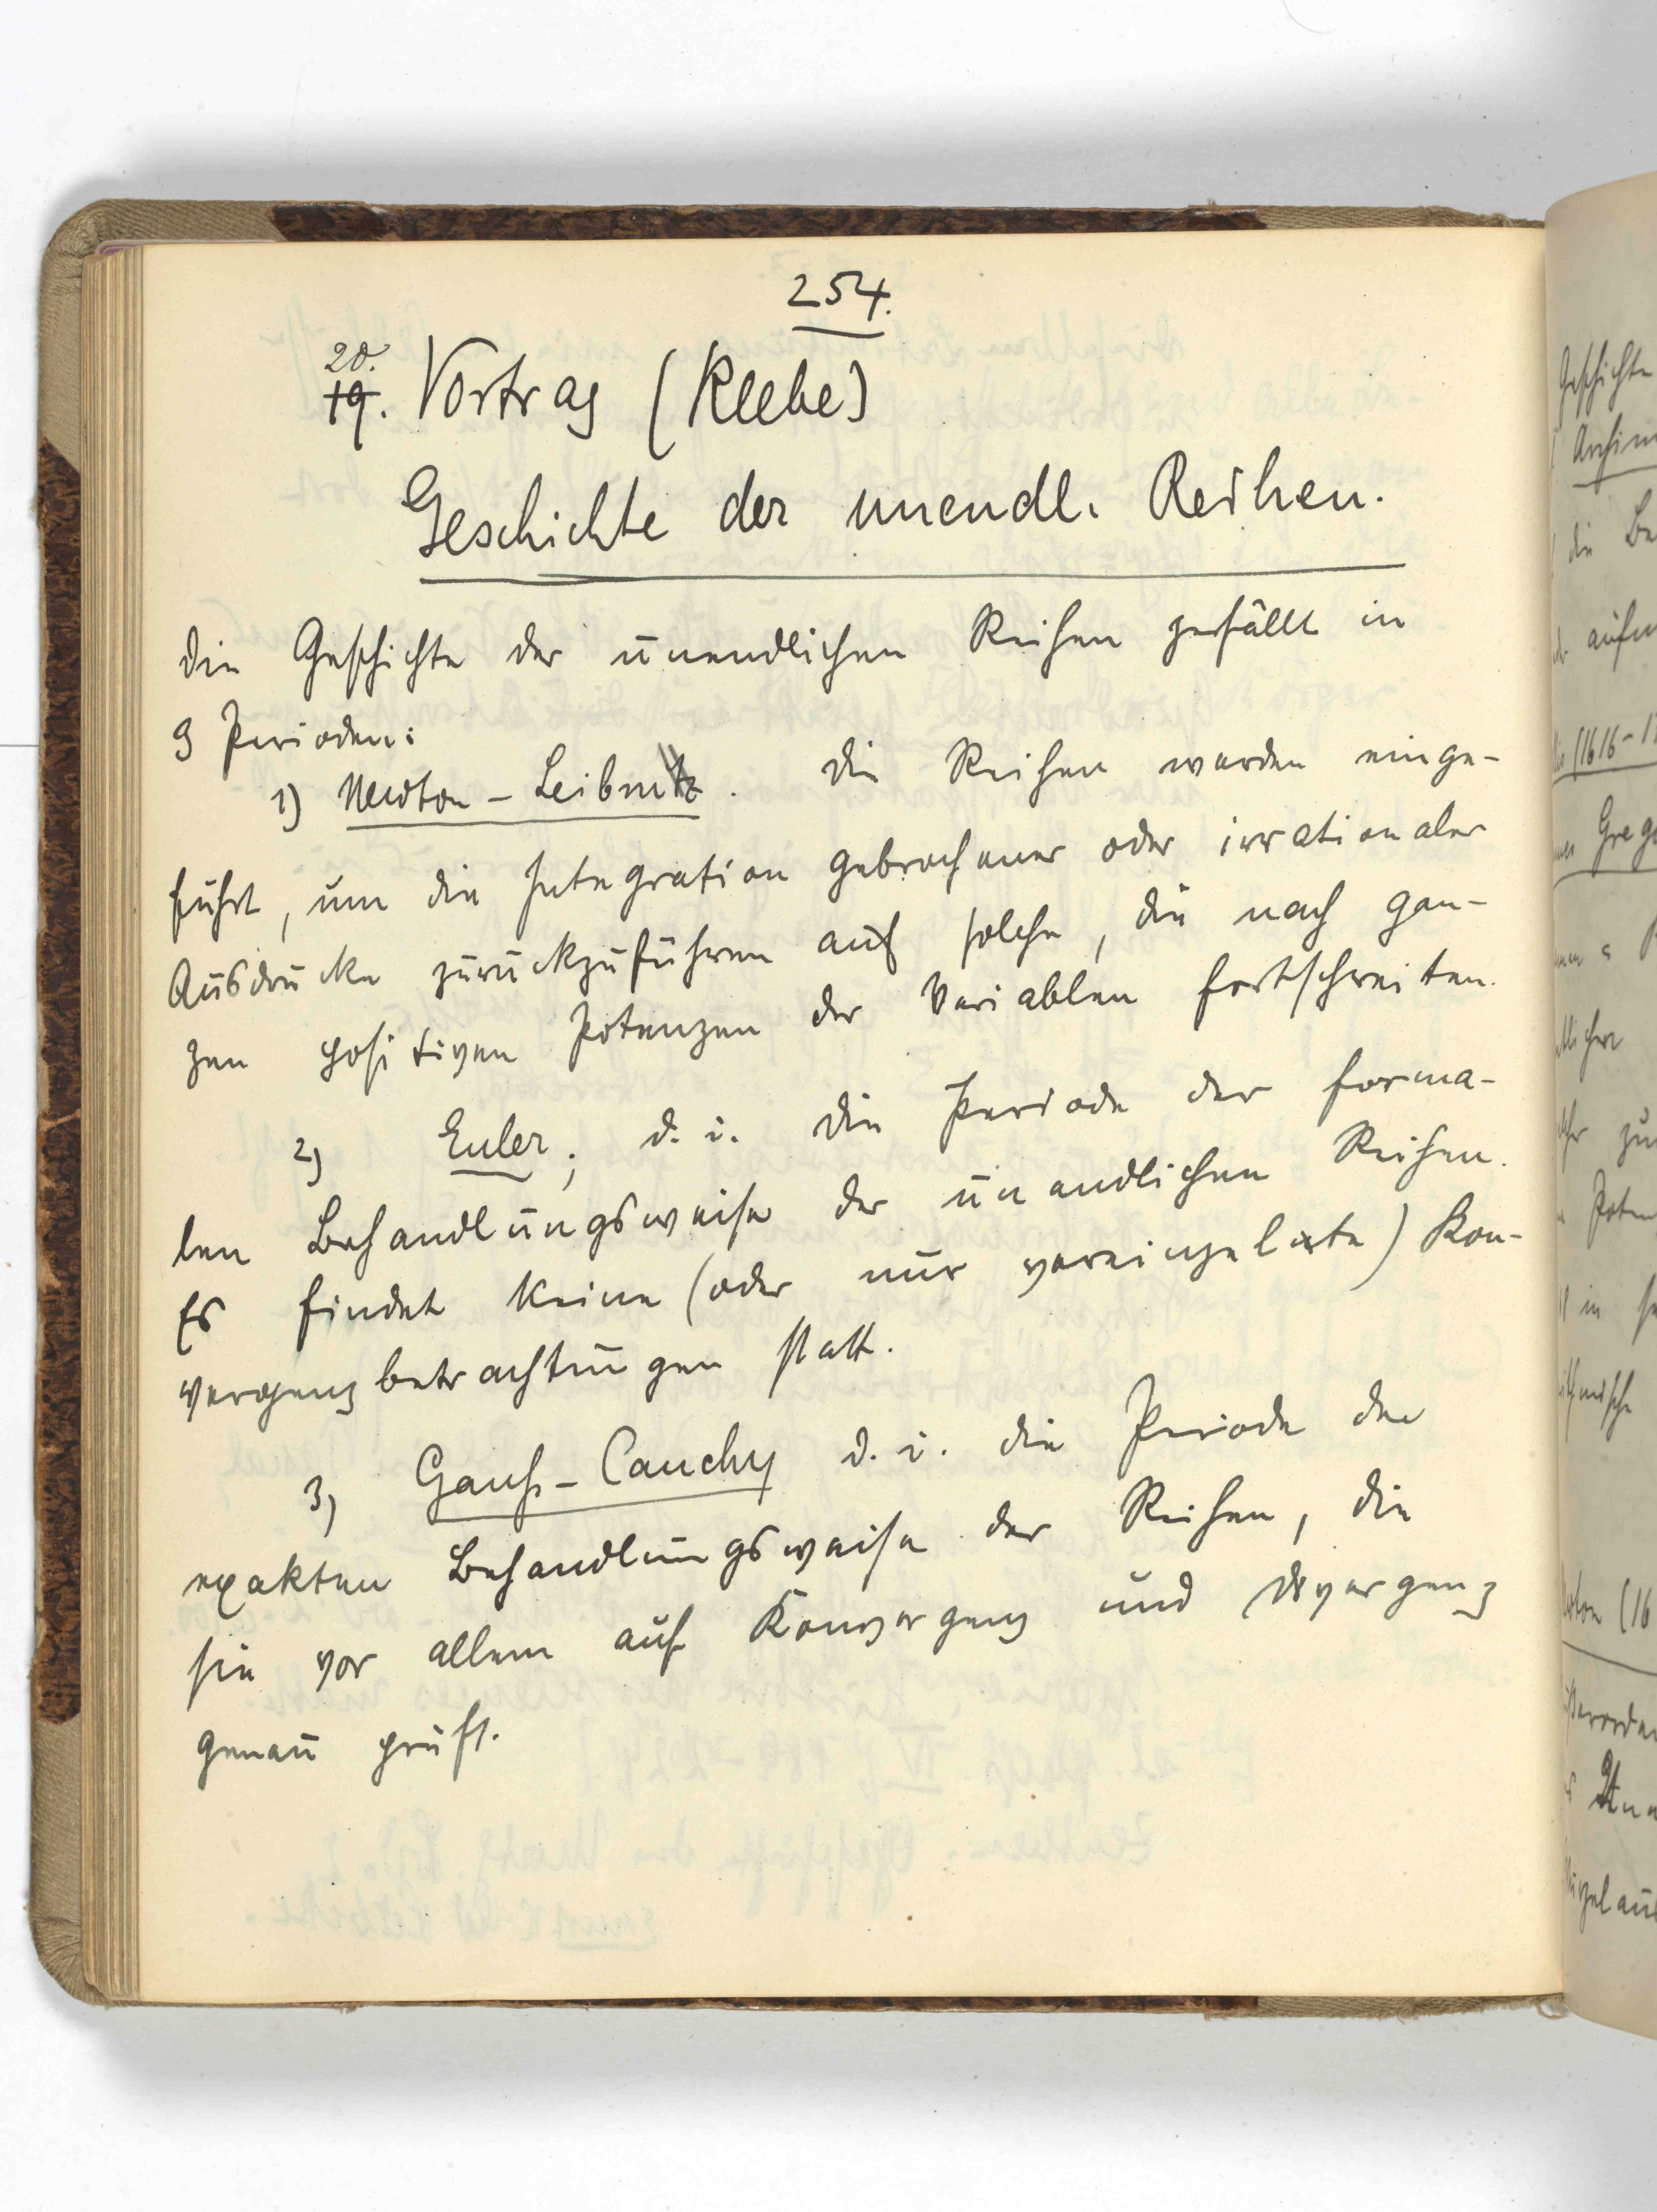 254.
20.
19. Vortrag (Klebe)
Geschichte der unendl. Reihen.
Die Geschichte der unendlichen Reihen zerfällt in
3 Perioden:
1) Newton - Leibnitz. Die Reihen werden einge-
führt, um die Integration gebrochener oder irrationaler
Ausdrücke zurückzuführen auf solche, die nach gan-
zen positiven Potenzen der Variablen fortschreiten.
2) Euler; d. i. die Periode der forma-
len Behandlungsweise der unendlichen Reihen.
Es findet keine (oder nur vereinzelte) Kon-
vergenzbetrachtungen statt.
3) Gauß - Cauchy d. i. die Periode der
exakten Behandlungsweise der Reihen, die
sie vor allem auf Konvergenz und Divergenz
genau prüft.
Geschichte
die
(1616-
in